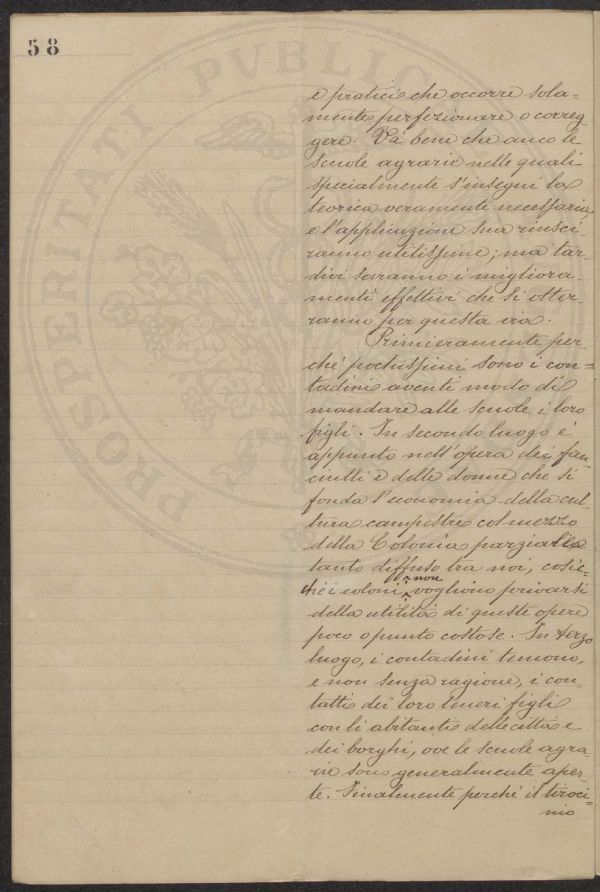 58
PROSPERITATI PVBLIC
e pratici che occorre sola=
mente perfezionare o correg-
gere. Và bene che anco le
Scuole agrarie nelle quali
specialmente s'insegni la
teorica veramente necessaria
e l'applicazione sua riusci-
ranno utilissime; ma tar-
divi saranno i migliora-
menti effettivi che si otter
ranno per questa via.
Primieramente per-
ché pochissimi sono i con=
tadini aventi modo di
mandare alle Scuole i loro
figli. In secondo luogo è
appunto nell'opera dei fan-
ciulli e delle donne che si
fonda l'economia della cul-
tura campestre col mezzo
della Colonia parziaria
tanto diffuso tra noi, cosic=
ché i coloni non vogliono privarsi
della utilità di queste opere
poco o punto costose. In terzo
luogo, i contadini temono,
e non senza ragione, i con-
tatti dei loro teneri figli
con li abitanti delle città e
dei borghi, ove le scuole agra
rie sono generalmente aper-
te. Finalmente perché il tiroci-
nio